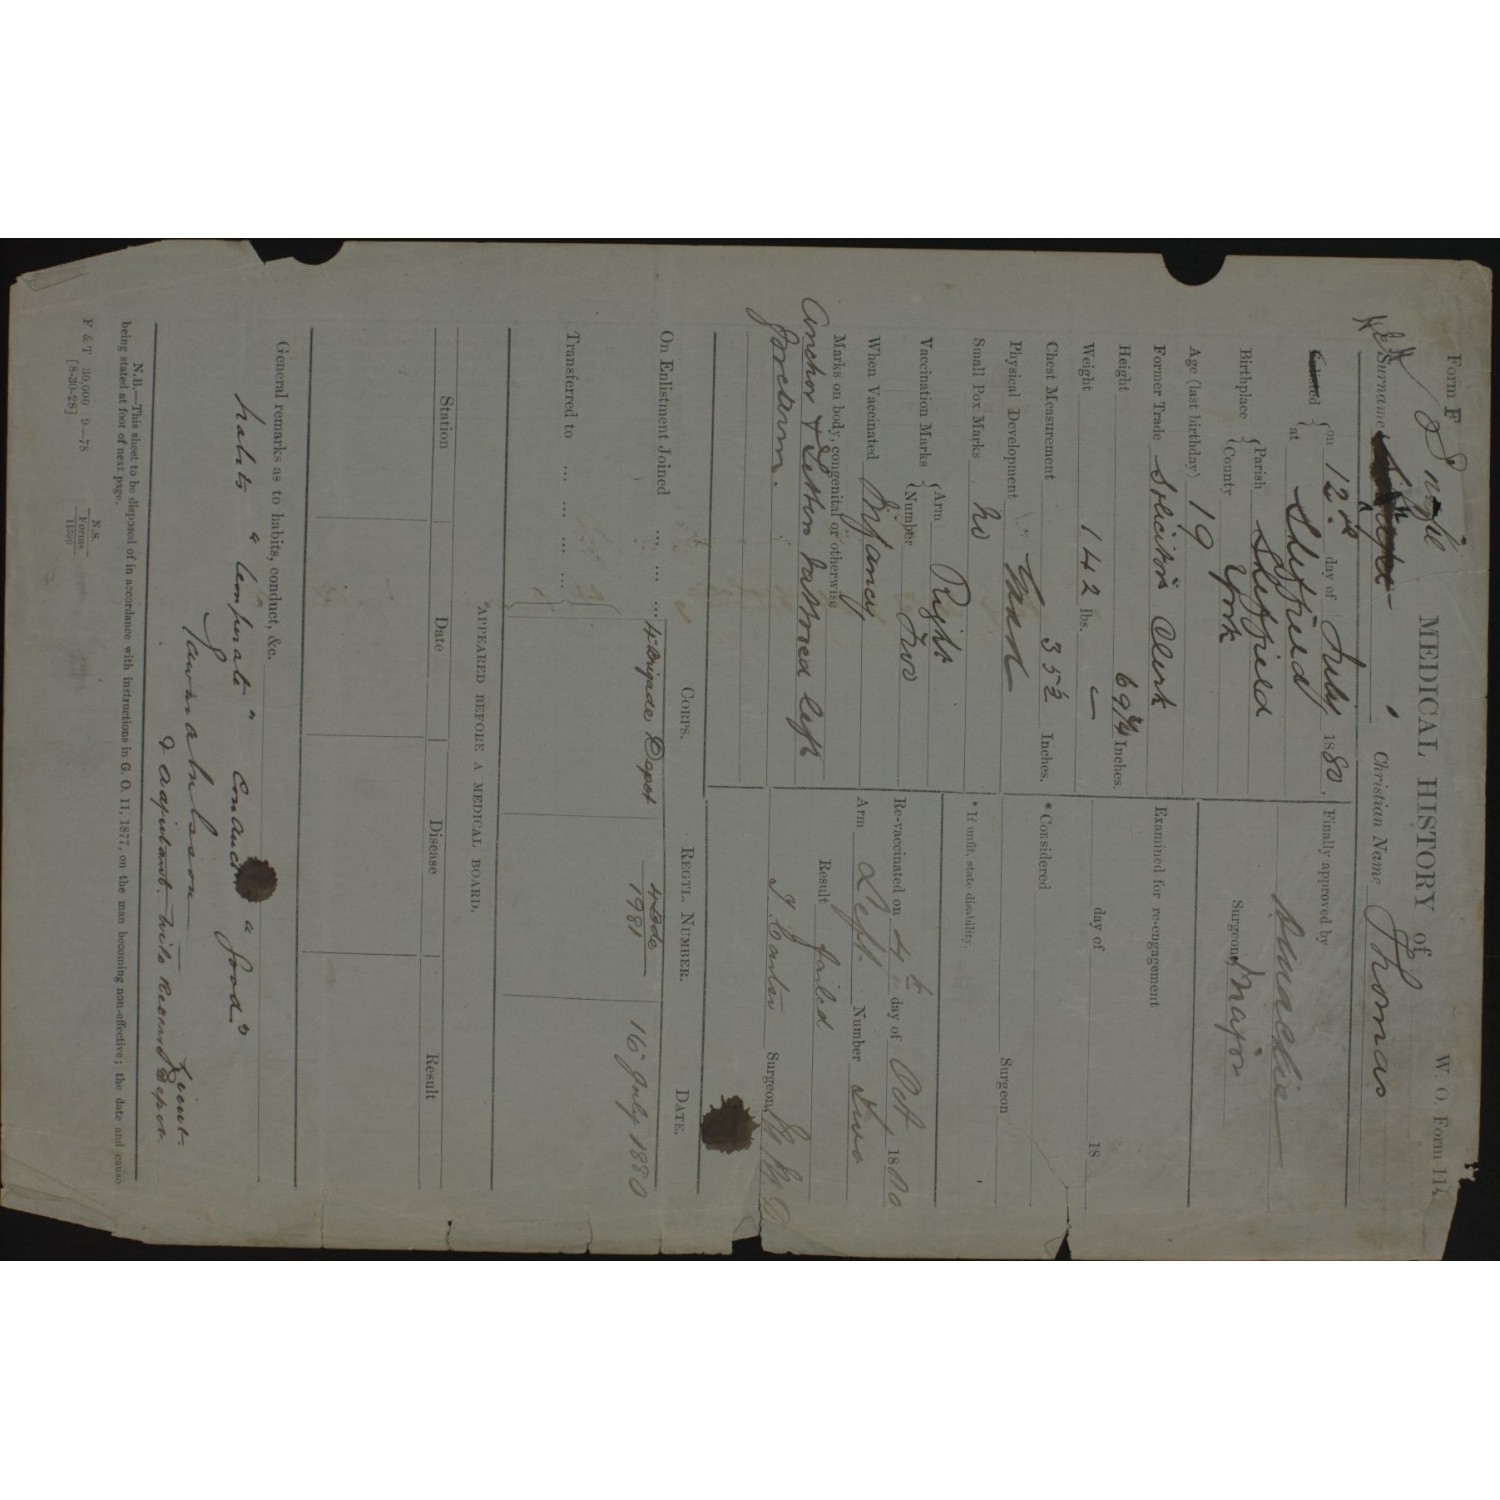 Form F
W. O. Form 114
MEDICAL HISTORY of
Surname
Christian Name Thomas
on 12th day of July 1880.
at Sheffield
Birthplace { Parish Sheffield
County York
Age (last birthday) 19
Former Trade Solicitors Clerk
Height 69 3/4 Inches.
Weight 142 lbs. —
Chest Measurement 35 1/2 Inches.
Physical Development
Small Pox Marks No
Vaccination Marks { Arm Right
Number Two
When Vaccinated Infancy
Marks on body, congenital or otherwise
Anchor & Letters tattooed left
forearm.
Finally approved by
Surgeon Major
Examined for re-engagement
day of 18
* Considered
Surgeon
* If unfit, state disability.
Re-vaccinated on 4th day of Oct 1880
Arm Left. Number Two
Result failed
Surgeon,
CORPS. REGTL. NUMBER. DATE.
On Enlistment Joined ... ... ... 4 Brigade Depot 4 Bde 1981 16 July 1880
Transferred to ... ... ... ...
APPEARED BEFORE A MEDICAL BOARD.
Station Date Disease Result
General remarks as to habits, conduct, &c.
habits "temperate" conduct "good."
Lieut.
& Adjutant.
N.B.—This sheet to be disposed of in accordance with instructions in G. O. 11, 1877, on the man becoming non-effective; the date and cause
being stated at foot of next page.
F & T 30,000 9—78
[8-30-28]
N.S.
Forms
11500